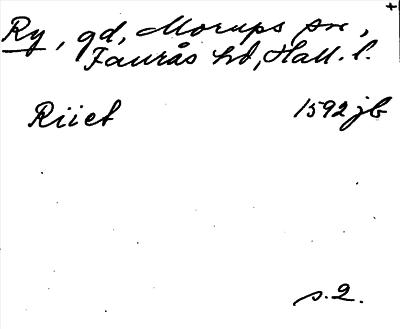 Ry, gd, Morups sn,
Faurås hd, Hall. l.
Riiet 1592 jb
s. 2.